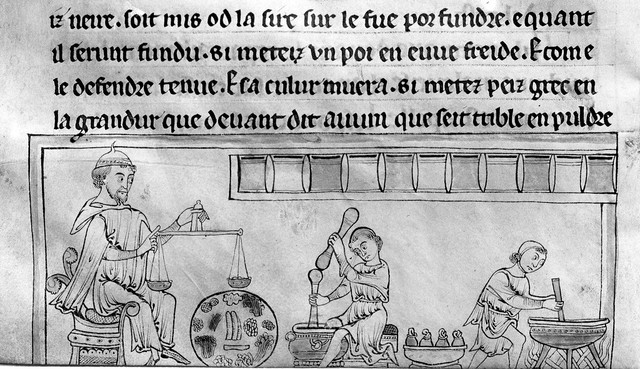 iz neire. soit mis od la sire sur le fue por fundre. e quant
il serunt fundu. si metez un poi en euue freide. E come
le defendre tenue. E sa culur muera. si metez peiz grec en
la grandur que deuant dit auum que seit trible en puldre